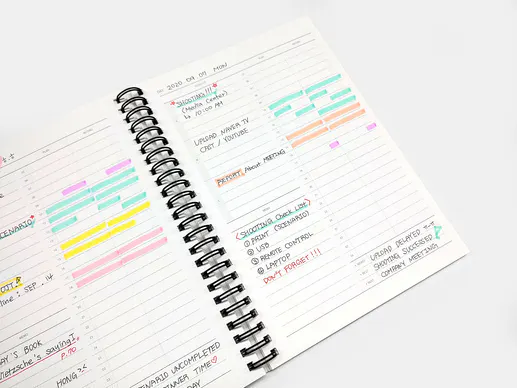 SCENARIO
line : SEP. 14
AY'S BOOK
Nietzsche's saying
P.70
HONG ><
ENARIO UNCOMPLETED
INNER TIME♡
DAY
2020 09 07 MON
*SHOOTING!!!*
(Media Center)
10:00 AM
UPLOAD NAVER TV
CAST / YOUTUBE
REPORT /About MEETING
<SHOOTING Check List>
① PRINT (SCENARIO)
② USB
③ REMOTE CONTROL
④ LAPTOP
DON'T FORGET!!!
UPLOAD DELAYED T-T
SHOOTING SUCCEEDED
COMPANY MEETING